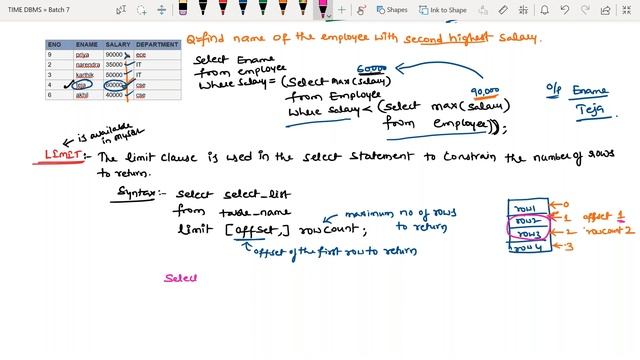 TIME DBMS » Batch 7
Shapes
Ink to Shape
Q:find name of the employee with second highest salary.
ENO ENAME SALARY DEPARTMENT
9 priya 90000 ece
2 narendra 35000 IT
3 karthik 50000 IT
4 teja 60000 cse
6 akhil 40000 cse
Select Ename
from employee
where salary = (Select max(salary)
from Employee
where salary < (select max(salary)
from employee));
60000
90,000
o/p
Ename
Teja
is available
in mysql
LIMIT:- The limit clause is used in the select statement to constrain the number of rows
to return.
Syntax:- select select_list
from table_name
limit [offset,] rowcount;
maximum no of rows
to return
offset of the first row to return
row1 0
row2 1
row3 2
row4 3
offset 1
rowcount 2
Selec